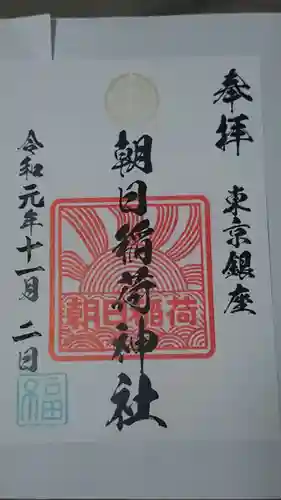 奉拝
東京銀座
朝日稲荷神社
朝日稲荷
令和元年十一月二日
福